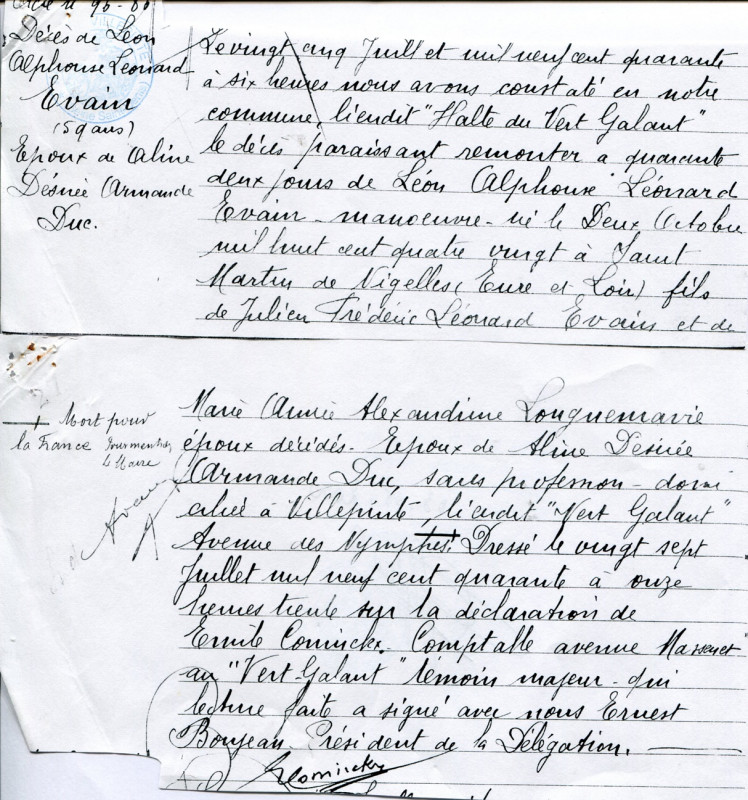 Décès de Léon
Alphonse Léonard
Evain
(59 ans)
Epoux de Aline
Désirée Armande
Duc.
Le vingt cinq Juillet mil neuf cent quarante
à six heures nous avons constaté en notre
commune, lieudit "Halte du Vert Galant"
le décès paraissant remonter a quarante
deux jours de Léon Alphonse Léonard
Evain - manoeuvre - né le Deux Octobre
mil huit cent quatre vingt à Saint
Martin de Nigelles (Eure et Loir) fils
de Julien Frédéric Léonard Evain et de
Marie Aimée Alexandrine Longuemarie
époux décédés - Epoux de Aline Désirée
Armande Duc, sans profession - domi
ciliée à Villepinte, lieudit "Vert Galant"
Avenue des Nymphes. Dressé le vingt sept
Juillet mil neuf cent quarante à onze
heures trente sur la déclaration de
Emile Cominckx. Comptable avenue Massenet
au "Vert-Galant" témoin majeur - qui
lecture faite a signé avec nous Ernest
Boujean. Président de la Délégation.
Mort pour
la France Pour mention
le Maire
ECominckx